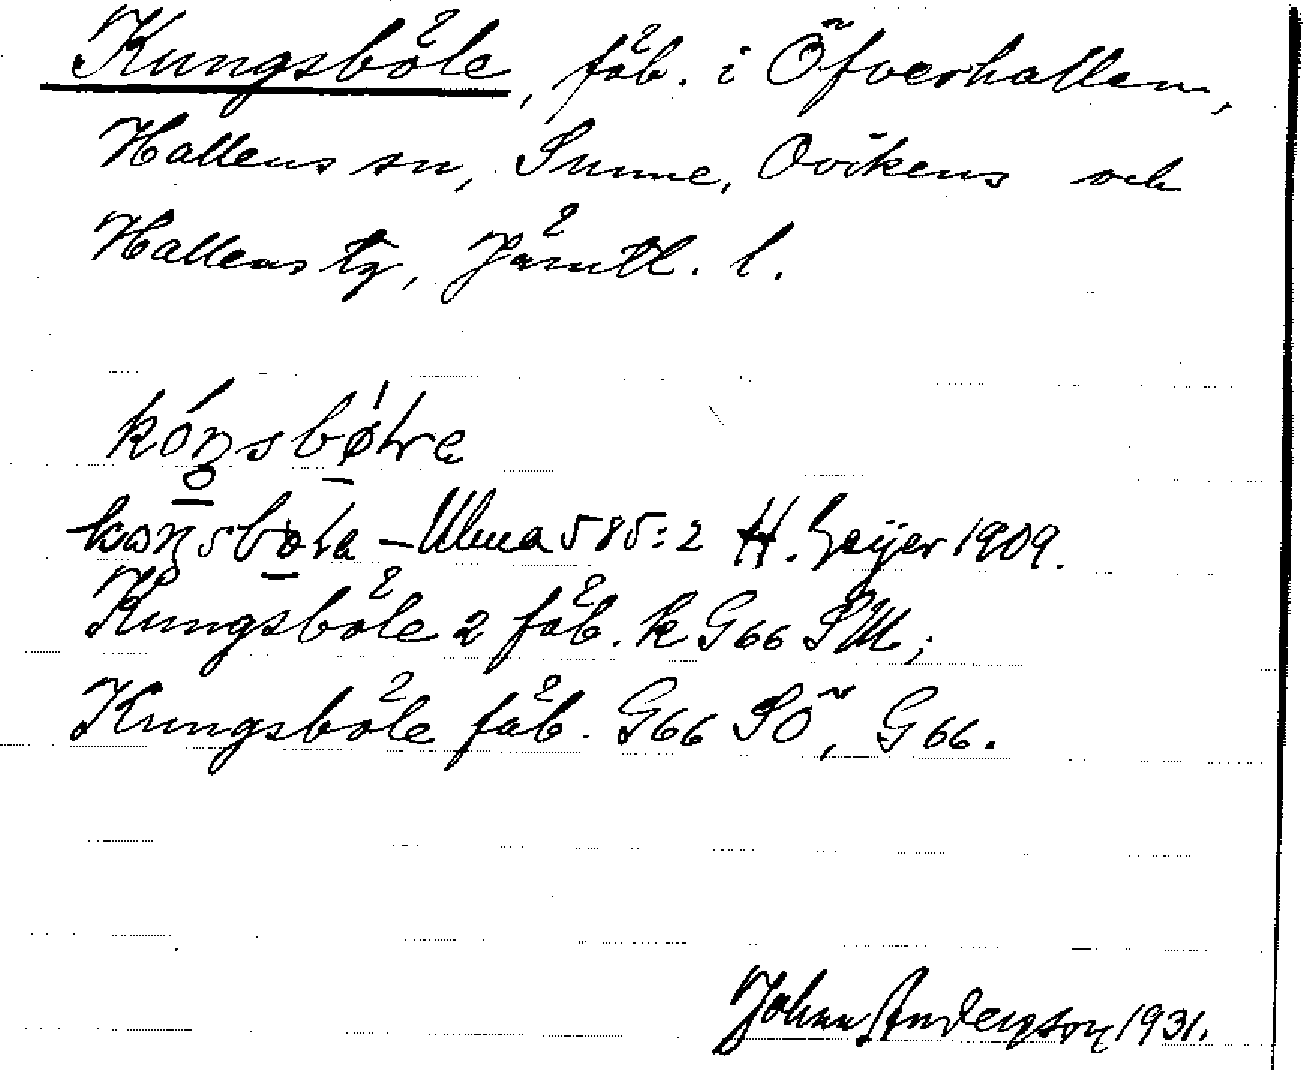 Kungsböle, fäb. i Öfverhallen,
Hallens sn, Sunne, Ovikens och
Hallens tg, Jämtl. l.
kóŋsbø̀lre
koŋsbøla – Ulma 585:2 H. Geijer 1909.
Kungsböle 2 fäb. k G66 SM;
Kungsböle fäb. G66 SÖ, G66.
Johan Anderzson 1931.